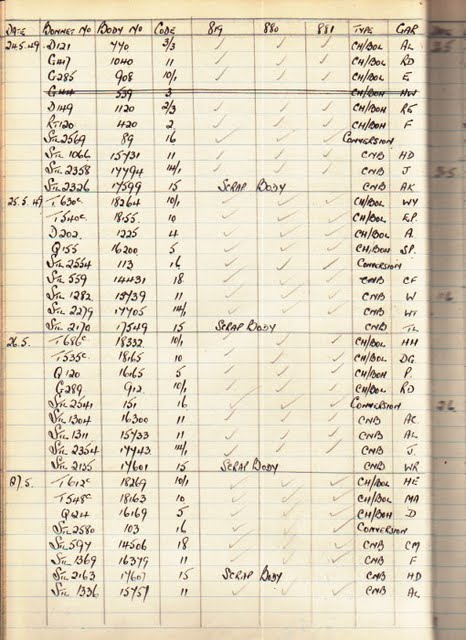 DATE BONNET NO BODY NO CODE 819 880 881 TYPE GAR
24.5.49 D121 770 3/3 ✓ ✓ ✓ CH/BOL AL
G417 1040 11 ✓ ✓ ✓ CH/BOL RD
G285 908 10/1 ✓ ✓ ✓ CH/BOL E
G144 539 3 CH/BOH HW
D149 1120 2/3 ✓ ✓ ✓ CH/BOH RE
RT120 420 2 ✓ ✓ ✓ CH/BOH F
STL 2569 89 16 ✓ ✓ ✓ CONVERSION
STL 1066 15731 11 ✓ ✓ ✓ CNB HD
STL 2358 17794 14/1 ✓ ✓ ✓ CNB J
STL 2326 17599 15 SCRAP BODY CNB AK
25.5.49 T630c 18264 10/1 ✓ ✓ ✓ CH/BOL WY
T540c 1855 10 ✓ ✓ ✓ CH/BOL EP.
D202 1225 4 ✓ ✓ ✓ CH/BOL A.
Q155 16200 5 ✓ ✓ ✓ CH/BOH SP.
STL 2554 113 16 ✓ ✓ ✓ CONVERSION
STL 559 14431 18 ✓ ✓ ✓ CNB CF
STL 1282 15739 11 ✓ ✓ ✓ CNB W
STL 2279 17705 14/1 ✓ ✓ ✓ CNB WY
STL 2170 17549 15 SCRAP BODY CNB TL
26.5. T686c 18332 10/1 ✓ ✓ ✓ CH/BOL HH
T535c 1865 10 ✓ ✓ ✓ CH/BOL DG.
Q120 16165 5 ✓ ✓ ✓ CH/BOH P.
G289 912 10/1 ✓ ✓ ✓ CH/BOL RD
STL 2541 151 16 ✓ ✓ ✓ CONVERSION
STL 1304 16300 11 ✓ ✓ ✓ CNB AK.
STL 1311 15733 11 ✓ ✓ ✓ CNB AL
STL 2354 17743 14/1 ✓ ✓ ✓ CNB J.
STL 2155 17601 15 SCRAP BODY CNB WR
27.5. T612c 18269 10/1 ✓ ✓ ✓ CH/BOL HE
T548c 18163 10 ✓ ✓ ✓ CH/BOL MA
Q124 16169 5 ✓ ✓ ✓ CH/BOH D
STL 2580 103 16 ✓ ✓ ✓ CONVERSION
STL 597 14506 18 ✓ ✓ ✓ CNB CM
STL 1369 16379 11 ✓ ✓ ✓ CNB F
STL 2163 17607 15 SCRAP BODY CNB HD
STL 1336 15757 11 ✓ ✓ ✓ CNB AL